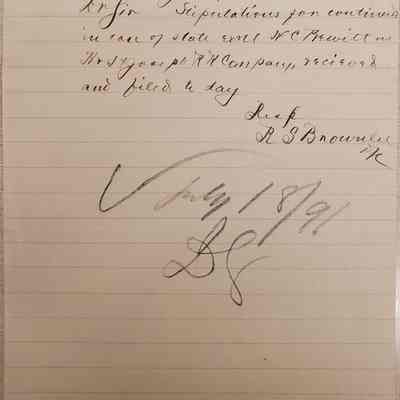 Dr Sir Stipulations for continued
in case of state exrel N C Prewitt vs
H & St Joseph R R Company recieved
and filed to day
Resp
R S Brownlee
July 18/91